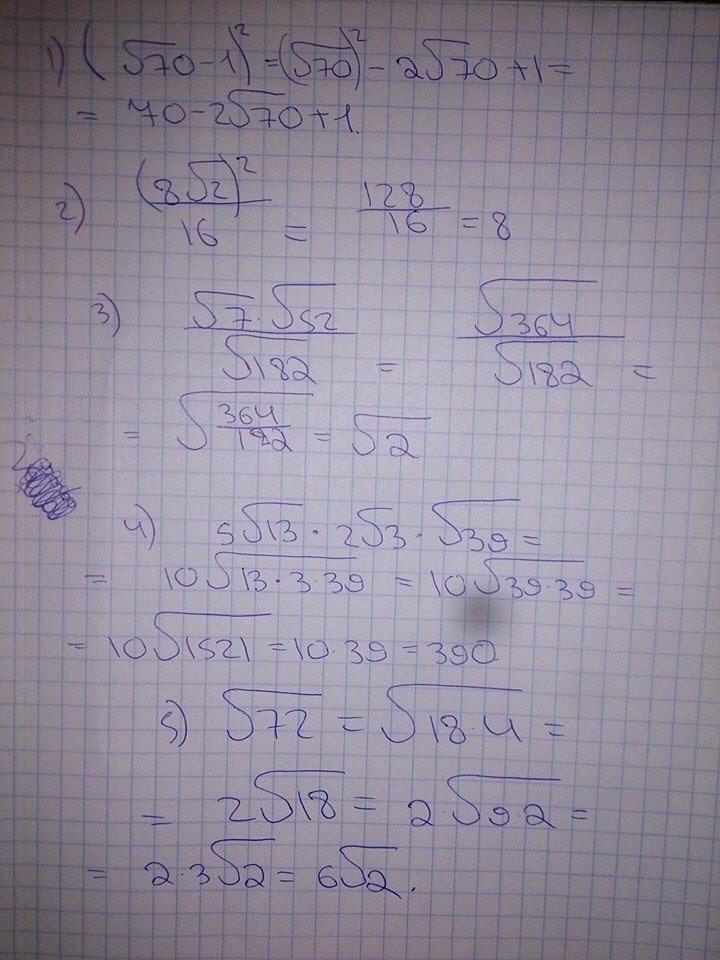 1) (√70 - 1)² = (√70)² - 2√70 + 1 =
= 70 - 2√70 + 1.
2) (8√2)²/16 = 128/16 = 8
3) √7 · √52/√182 = √364/√182 =
= √(364/182) = √2
4) 5√13 · 2√3 · √39 =
= 10√(13 · 3 · 39) = 10√(39 · 39) =
= 10√1521 = 10 · 39 = 390
5) √72 = √(18 · 4) =
= 2√18 = 2 · √(9 · 2) =
= 2 · 3√2 = 6√2.